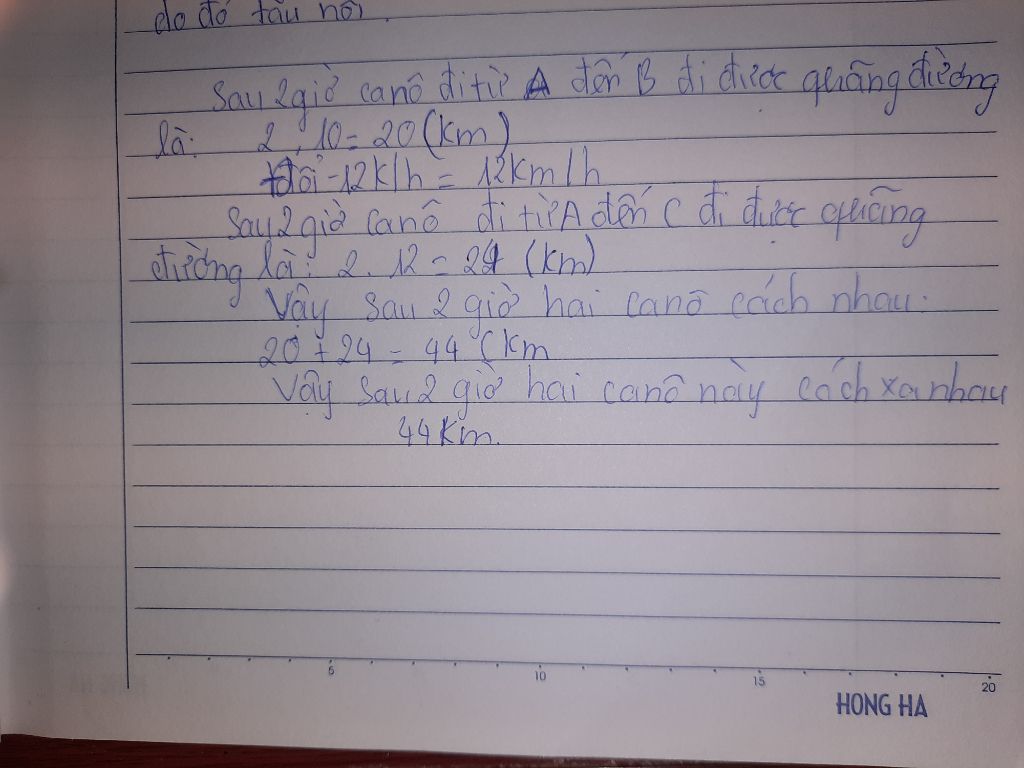 do đó tàu nổi.
Sau 2 giờ canô đi từ A đến B đi được quãng đường
là: 2.10 = 20 (km)
đổi -12k/h = 12km/h
Sau 2 giờ canô đi từ A đến C đi được quãng
đường là: 2.12 = 24 (km)
Vậy sau 2 giờ hai canô cách nhau:
20 + 24 = 44 (km
Vậy sau 2 giờ hai canô này cách xa nhau
44km.
5 10 15 20
HONG HA